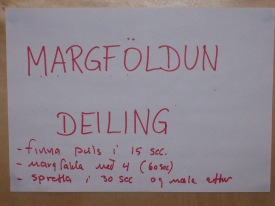 MARGFÖLDUN
DEILING
- finna púls í 15 sec.
- margfalda með 4 (60 sec)
- spretta í 30 sec og mæla eftir